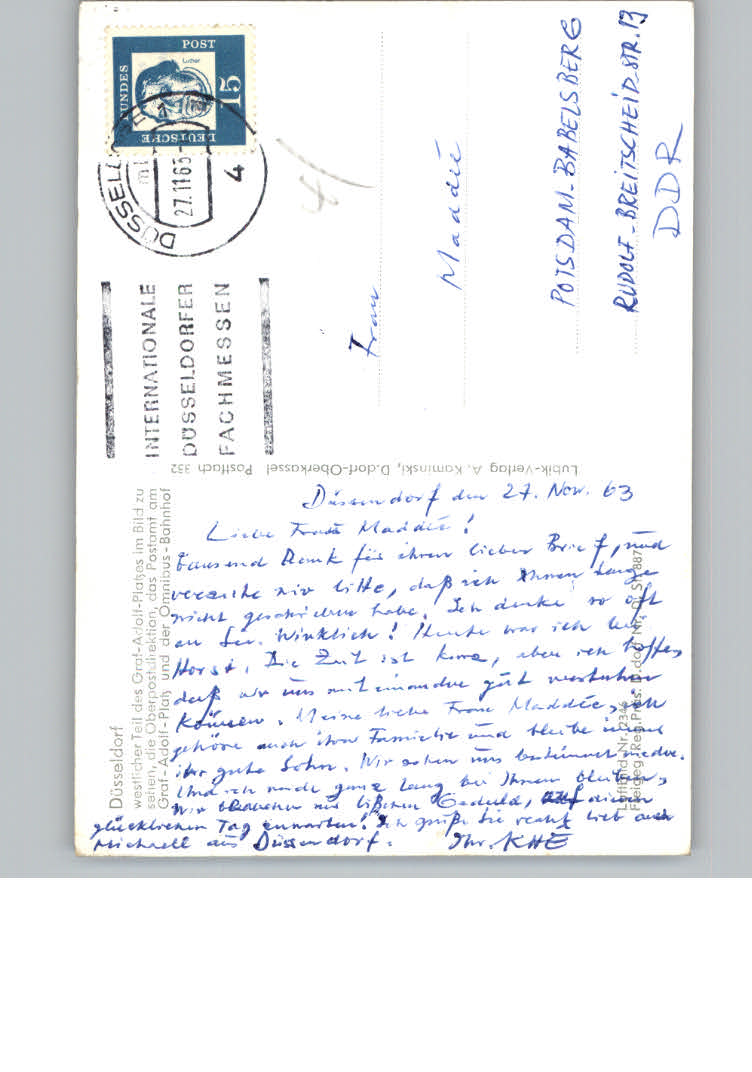 DEUTSCHE
BUNDES
POST
15
Luther
DÜSSELDORF
27.11.63
4
INTERNATIONALE
DÜSSELDORFER
FACHMESSEN
Frau
Maddée
POTSDAM-BABELSBERG
RUDOLF-BREITSCHEID.STR.
DDR
Lubik-Verlag A. Kaminski, D.dorf-Oberkassel Postfach 352
Düsseldorf
westlicher Teil des Graf-Adolf-Platzes im Bild zu
sehen, die Oberpostdirektion, das Postamt am
Graf-Adolf-Platz und der Omnibus-Bahnhof
Luftbild Nr. 2346
Freigeg. Reg. Präs. D.dorf Nr.
Düssendorf den 27. Nov. 63
Liebe Frau Maddée!
Tausend Dank für ihren lieben Brief, und
verzeihe mir bitte, daß ich Ihnen lange
nicht geschrieben habe. Ich denke so oft
an Sie. Wirklich! Heute war ich bei
Horst. Die Zeit ist kurz, aber ich hoffe,
daß wir uns miteinander gut verstehen
können. Meine liebe Frau Maddée, ich
gehöre auch ihrer Familie und bleibe
ihr gute Sohn. Wir sehen uns bestimmt wieder.
Und ich werde ganz lang bei Ihnen bleiben,
wir brauchen nur bißchen Geduld, auf diesen
glücklichen Tag zu warten! Ich grüße Sie recht lieb auch
Michaell aus Düssendorf. Ihr. KHE